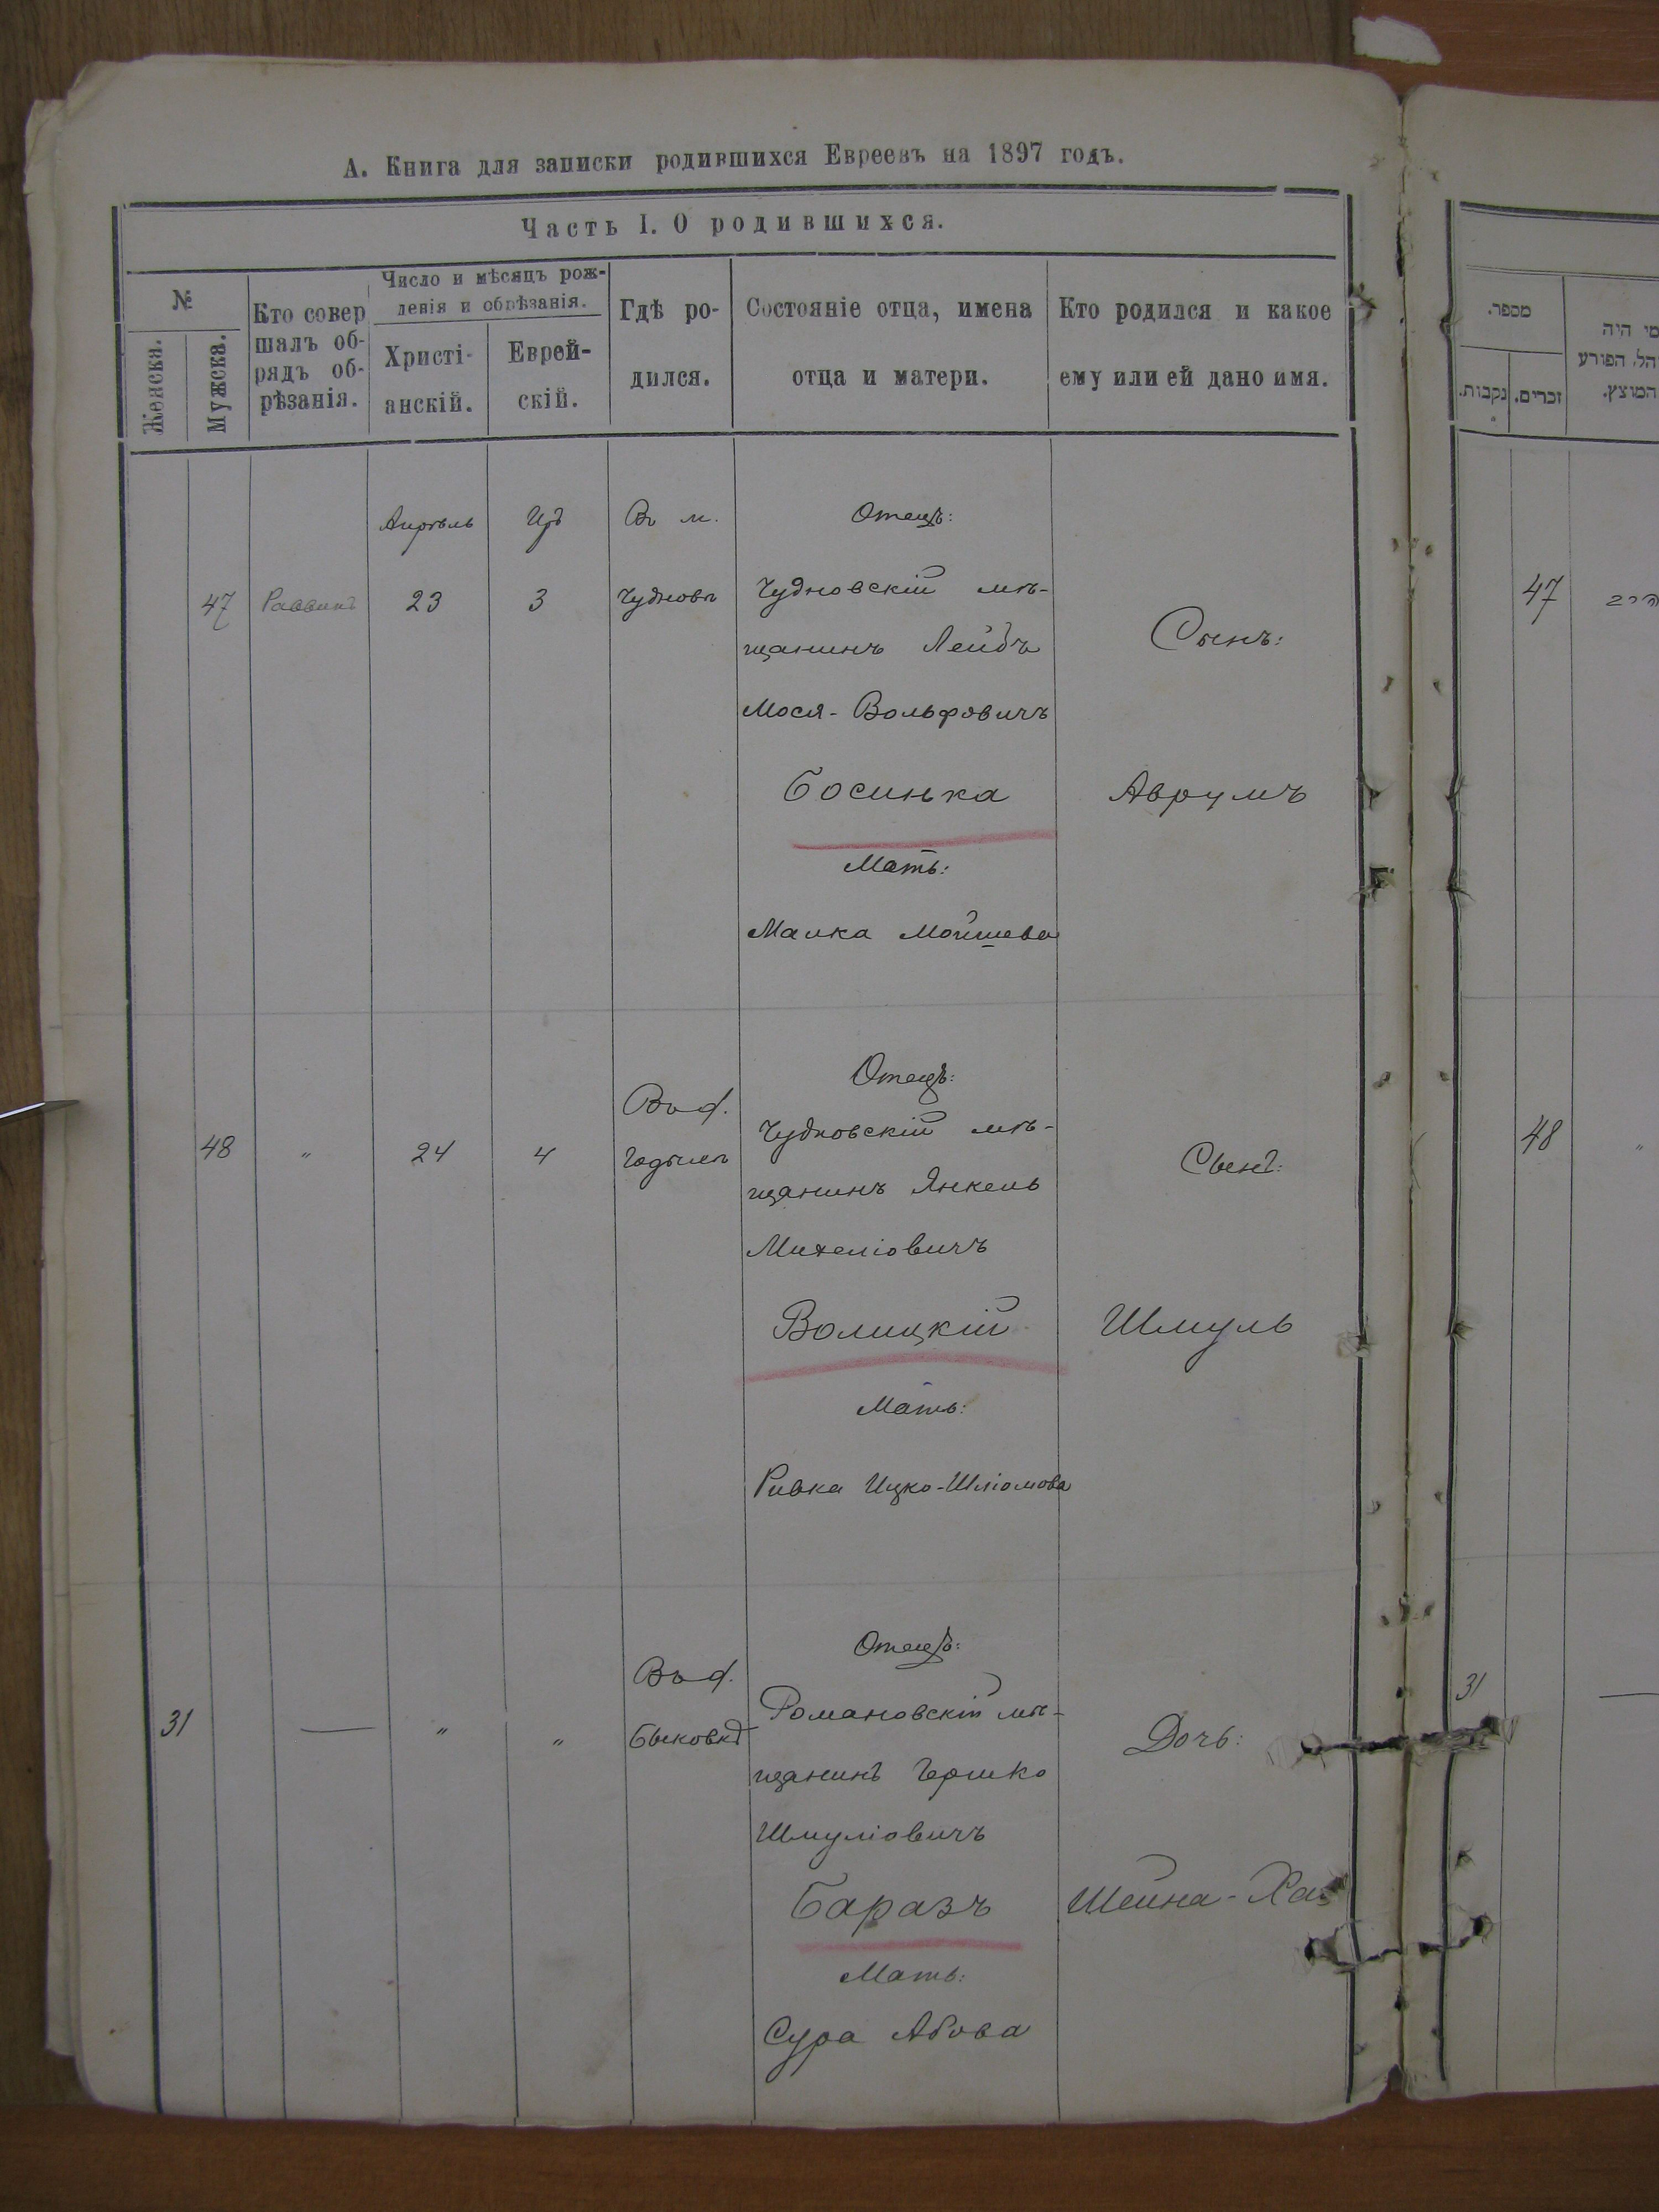 А. Книга для записки родившихся Евреевъ на 1897 годъ.
Часть I. О родившихся.
№
Женска.
Мужска.
Кто совер
шалъ об-
рядъ об-
рѣзанія.
Число и мѣсяцъ рож-
ленія и обрѣзанія.
Христі-
анскій.
Еврей-
скій.
Гдѣ ро-
дился.
Состояніе отца, имена
отца и матери.
Кто родился и какое
ему или ей дано имя.
47
Раввинъ
Апрѣль
23
Ир
3
Въ м.
Чудновъ
Отецъ:
Чудновскій мѣ-
щанинъ Лейбъ
Мося-Вольфовичъ
Босинька
Мать:
Малка Мойшева
Сынъ:
Аврумъ
48
"
24
4
Въ д.
Отецъ:
Чудновскій мѣ-
щанинъ Янкель
Михеліовичъ
Волицкій
Мать:
Ривка Ицко-Шліомова
Сынъ:
Шмуль
31
—
"
"
Въ д.
Быковкѣ
Отецъ:
Романовскій мѣ-
щанинъ Гершко
Шмуліовичъ
Баразъ
Мать:
Сура Абова
Дочь:
Шейна-Ха
מספר.
נקבות.
זכרים.
מי היה
הפורע
המוצץ.
47
48
"
31
—